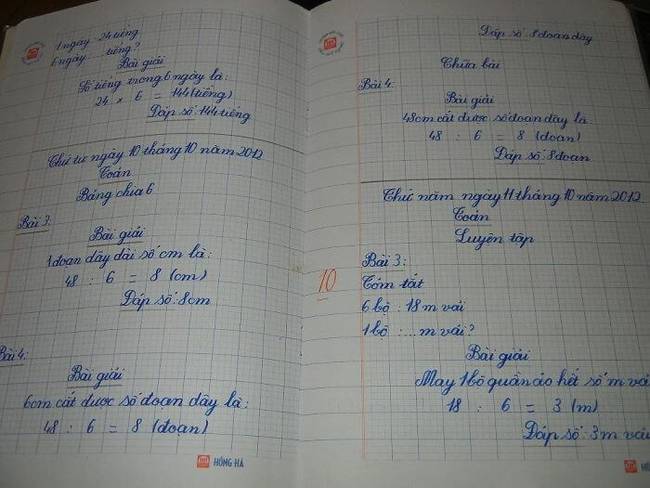 1 ngày : 24 tiếng
6 ngày ... tiếng?
Bài giải
Số tiếng trong 6 ngày là:
24 x 6 = 144 (tiếng)
Đáp số: 144 tiếng
Thứ tư ngày 10 tháng 10 năm 2012
Toán
Bảng chia 6
Bài 3:
Bài giải
1 đoạn dây dài số cm là:
48 : 6 = 8 (cm)
Đáp số: 8cm
Bài 4:
Bài giải
6cm cắt được số đoạn dây là:
48 : 6 = 8 (đoạn)
HỒNG HÀ
Đáp số: 8 đoạn dây
Chữa bài
Bài 4:
Bài giải
48cm cắt được số đoạn dây là
48 : 6 = 8 (đoạn)
Đáp số: 8 đoạn
Thứ năm ngày 11 tháng 10 năm 2012
Toán
Luyện tập
10
Bài 3:
Tóm tắt
6 bộ : 18 m vải
1 bộ : ... m vải?
Bài giải
May 1 bộ quần áo hết số m vả
18 : 6 = 3 (m)
Đáp số: 3 m vải
HỒNG HÀ